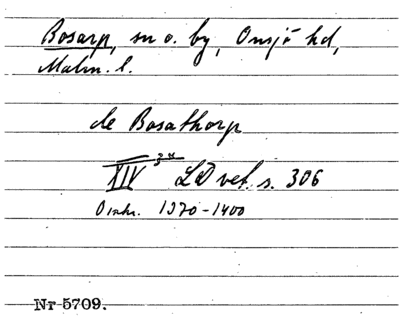 Bosarp, sn o. by, Onsjö hd,
Malm. l.
de Bosathorp
XIV 3/4 LD vet. s. 306
Omkr. 1370-1400
Nr 5709.